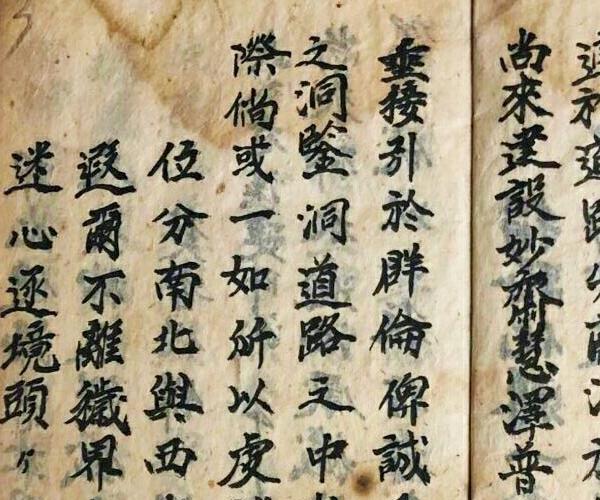 道路
尚來運設妙齋慧澤普
垂接引於群倫俾誠
之洞鑒洞道路之中
際倘或一如所以虔
位分南北與西
遐爾不離穢界
迷心逐境頭々